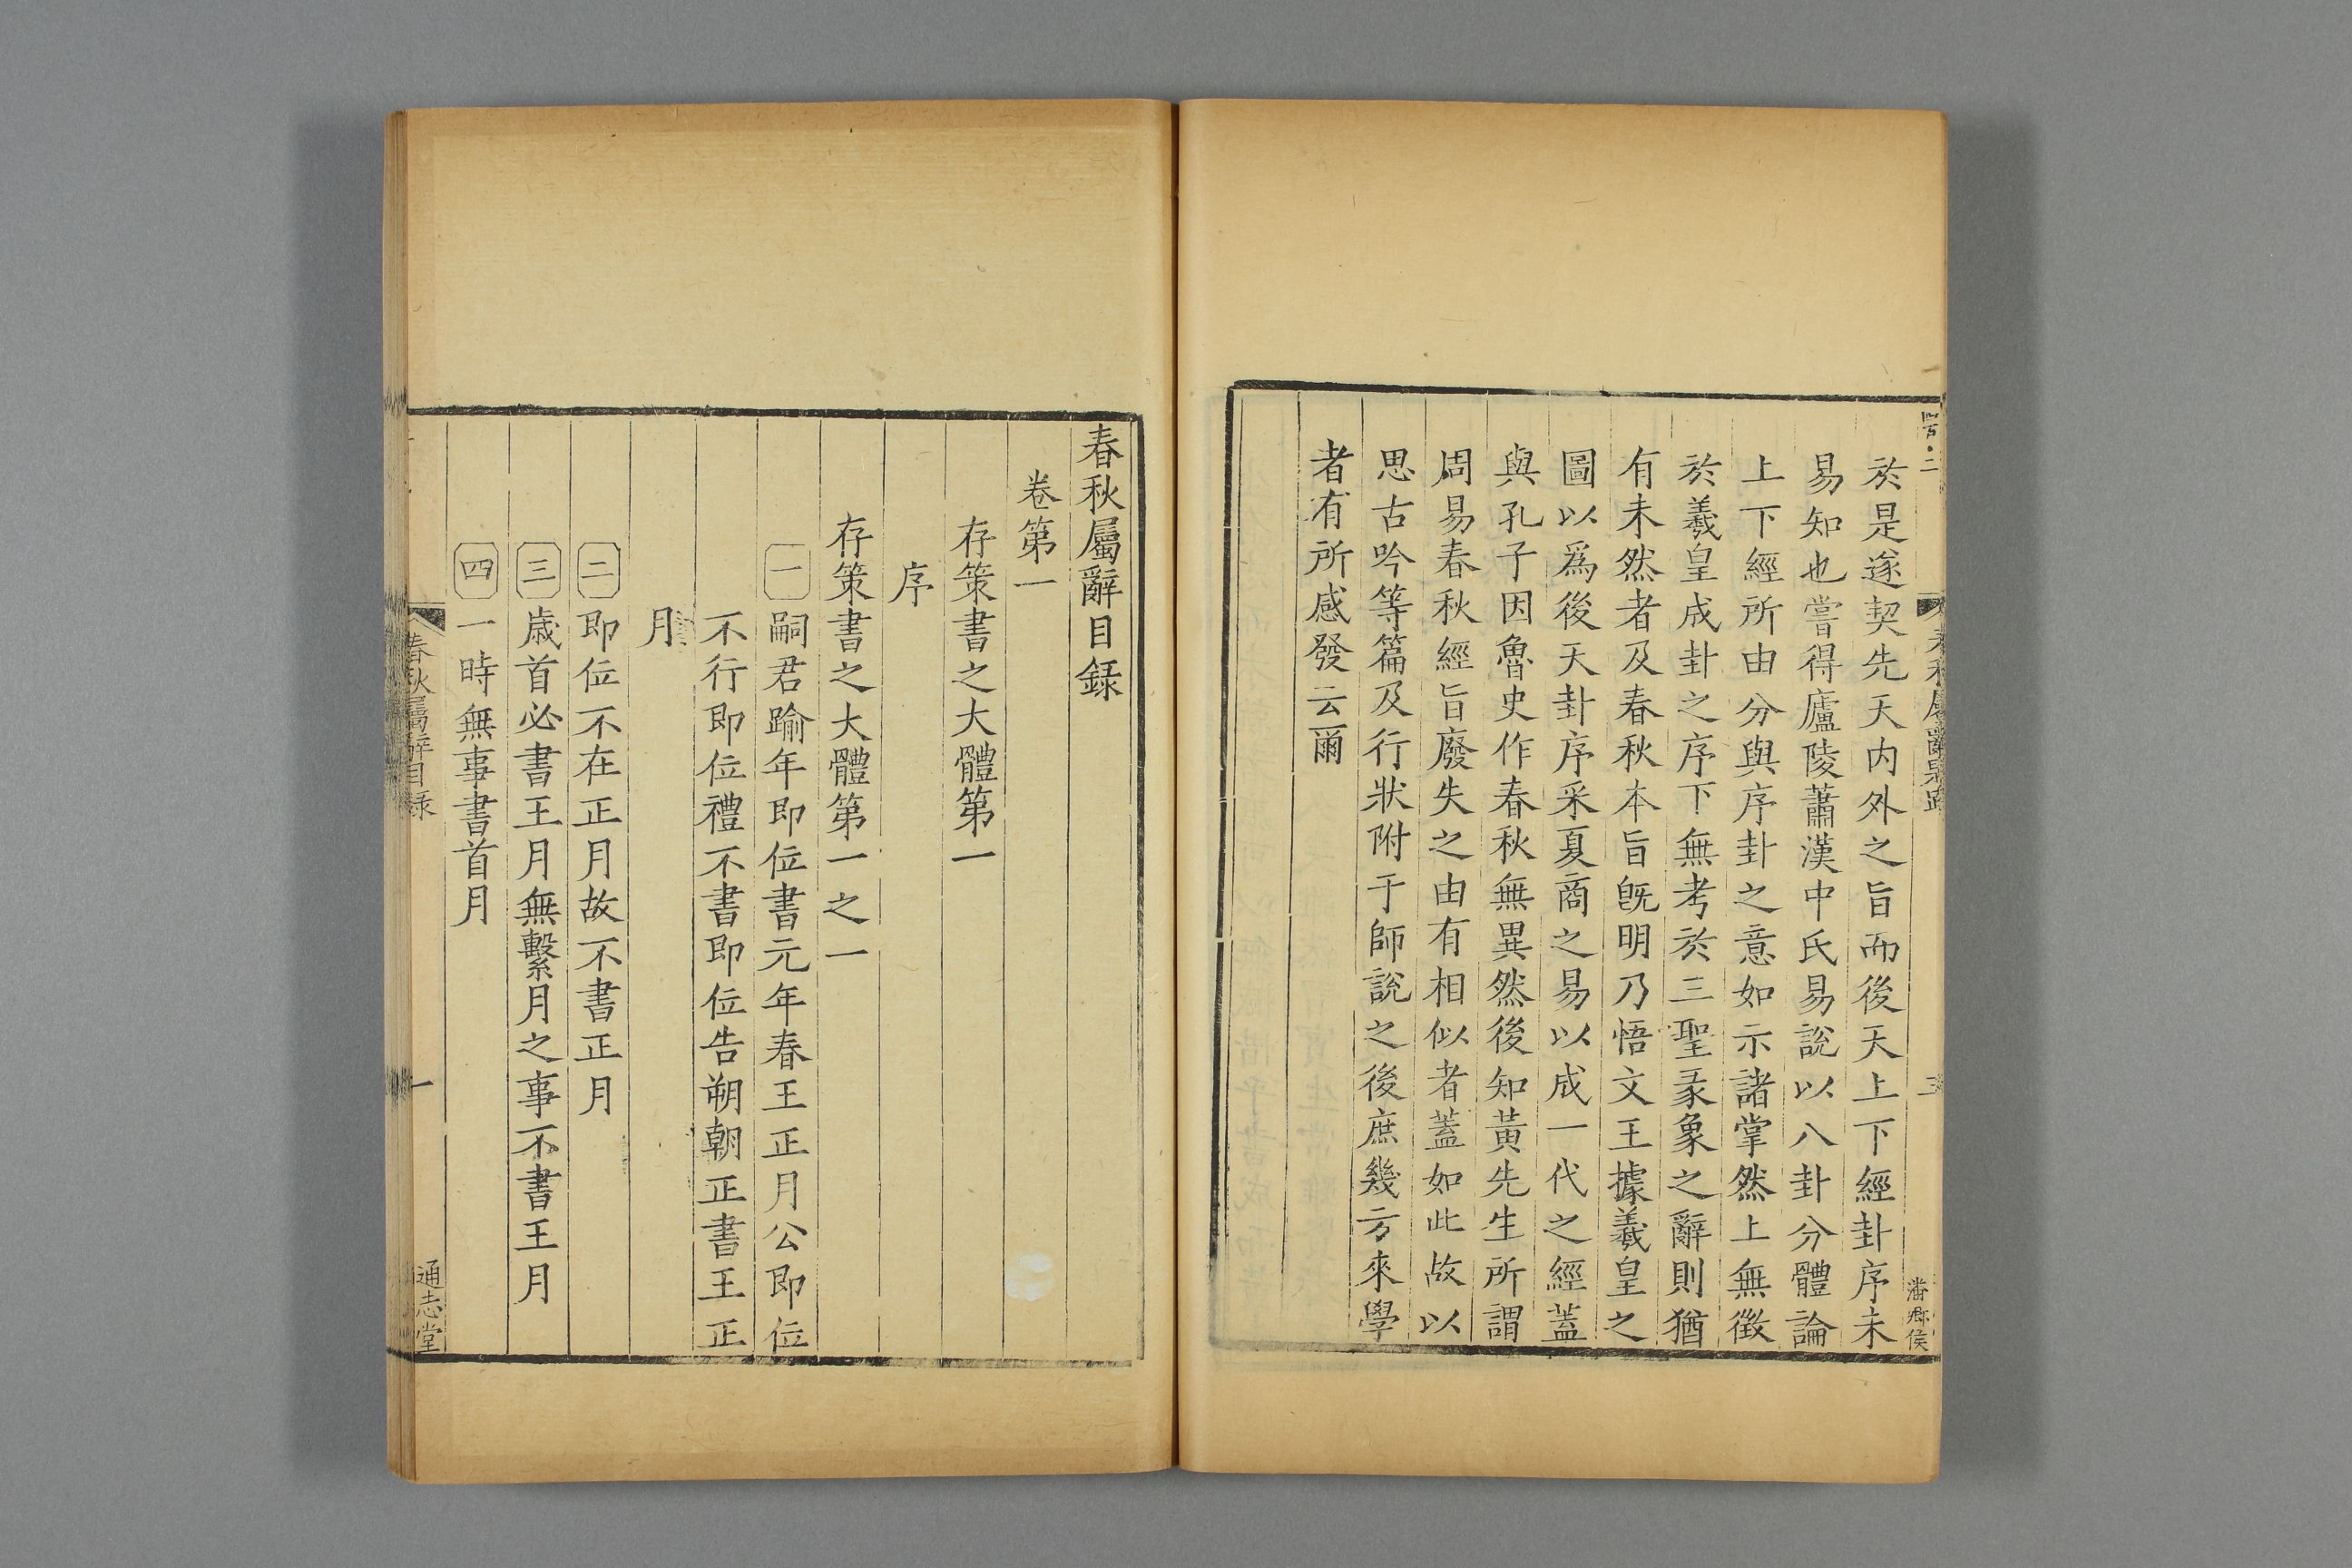 於是遂契先天内外之旨而後天上下經卦序未
易知也嘗得廬陵蕭漢中氏易說以八卦分體論
上下經所由分與序卦之意如示諸掌然上無徵
於羲皇成卦之序下無考於三聖彖象之辭則猶
有未然者及春秋本旨既明乃悟文王據羲皇之
圖以爲後天卦序采夏商之易以成一代之經蓋
與孔子因魯史作春秋無異然後知黃先生所謂
周易春秋經旨廢失之由有相似者蓋如此故以
思古吟等篇及行狀附于師說之後庶幾方來學
者有所感發云爾
春秋屬辭目錄
卷第一
存策書之大體第一
序
存策書之大體第一之一
一 嗣君踰年即位書元年春王正月公即位
不行即位禮不書即位告朔朝正書王正
月
二 即位不在正月故不書正月
三 歳首必書王月無繫月之事不書王月
四 一時無事書首月
春秋屬辭目錄
一
通志堂